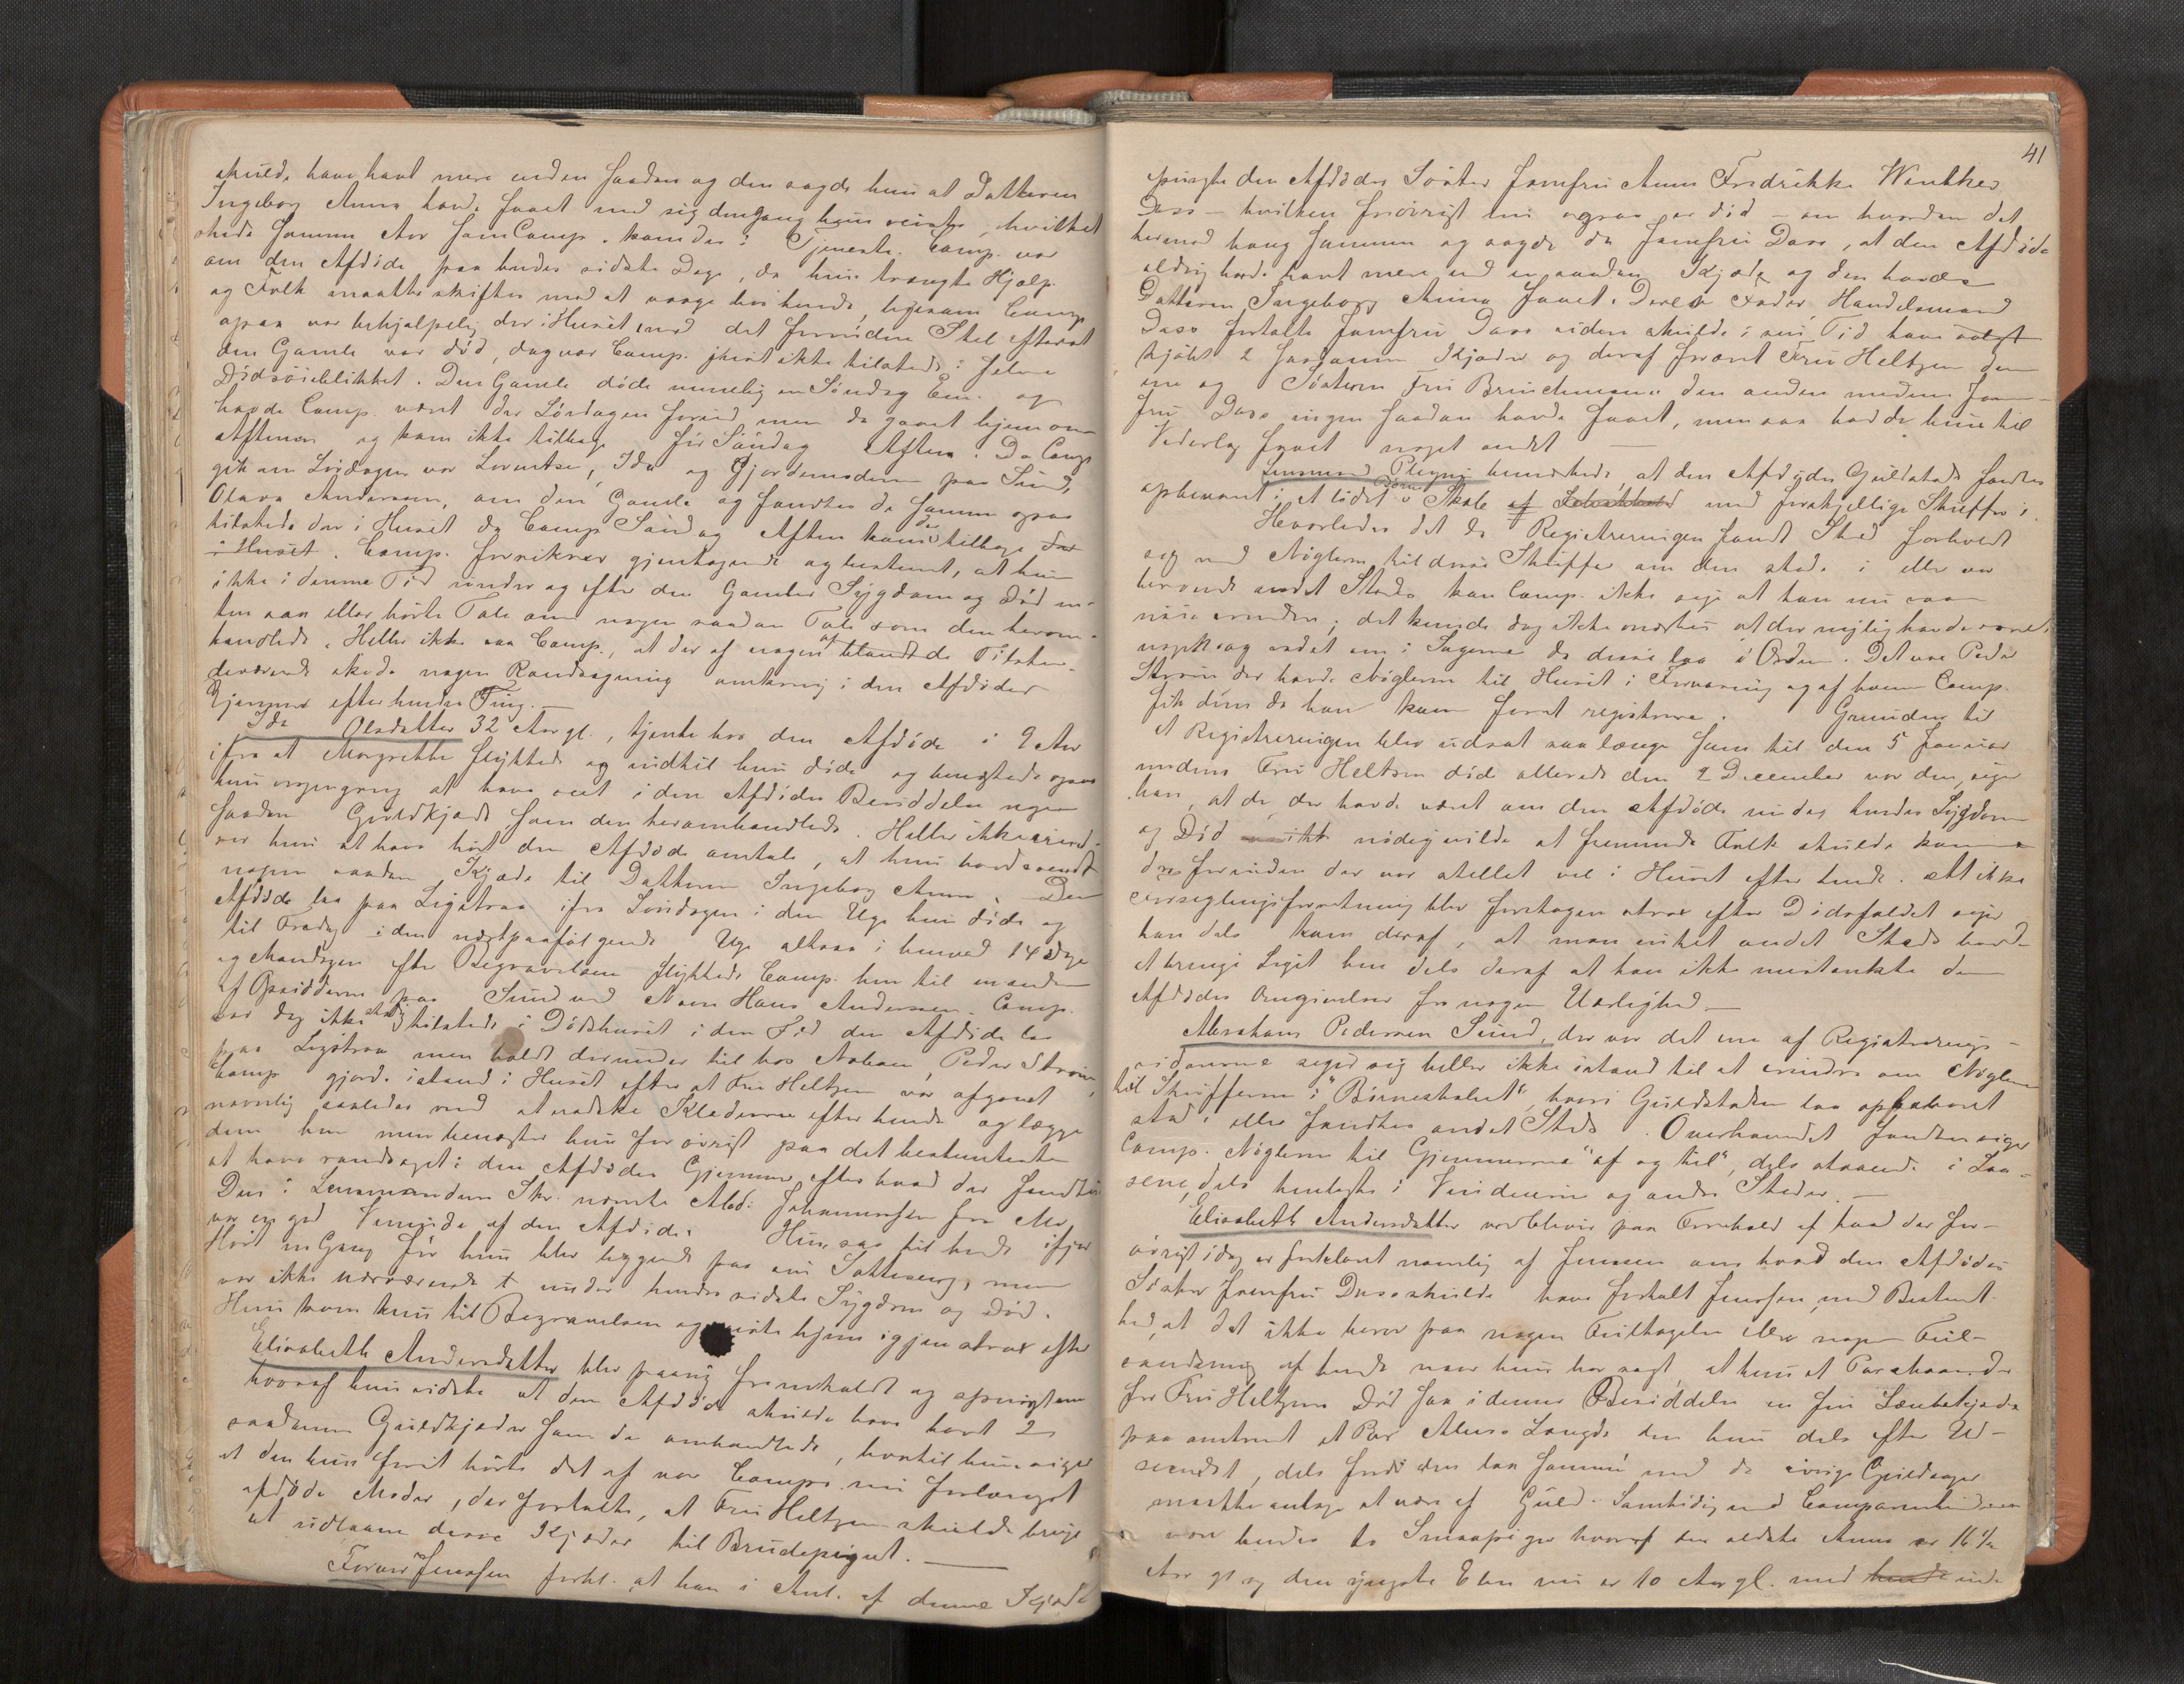 skulde have havt mere end en saadan og den sagde hun at Datteren
Ingeborg Anna havde faaet med sig dengang hun reiste, hvilket
skede samme Aar som Comp. kom der i Tjeneste. Comp. var
om den Afdøde paa hendes sidste Dage, da hun trængte Hjælp
og Folk maatte skiftes med at vaage hos hende, ligesom Comp.
ogsaa var behjælpelig der i Huset med det fornødne Stel efterat
den Gamle var død, dog var Comp. just ikke tilstede i selve
Dødsøieblikket. Den Gamle døde nemlig en Søndag Em. og
havde Comp. været der Lørdagen forud men da gaaet hjem om
Aftenen og kom ikke tilbage før Søndag Aften. Da Comp.
gik om Lørdagen var Lorentse, Ida og Gjordemoderen paa Sund,
Olava Andersen, om den Gamle og fandtes de samme ogsaa
tilstede der i Huset da Comp. Søndag Aften kom der tilbage der
i Huset. Comp. forsikrer gjentagende og bestemt, at hun
ikke i denne Tid under og efter den Gamles Sygdom og Død en-
ten saa eller hørte Tale om nogen saadan Tale som den herom-
handlede. Heller ikke saa Comp., at der af nogen af blandt de Tilste-
deværende skede nogen Randsagning omkring i den Afdødes
Gjemmer efter hendes Ting.
Ida Olsdatter 32 Aar gl., tjente hos den Afdøde i 9 Aar
ifra at Margrethe flyttede og indtil hun døde og benægtede ogsaa
hun nogengang at have seet i den Afdødes Besiddelse nogen
saadan Guldkjæde som den heromhandlede. Heller ikke erind-
rer hun at have hørt den Afdøde omtale, at hun havde sendt
nogen saadan Kjæde til Datteren Ingeborg Anna. Den
Afdøde laa paa Ligstraa ifra Søndagen i den Uge hun døde og
til Fredag i den næstpaafølgende Uge altsaa i henved 14 Dage
og Mandagen efter Begravelsen flyttede Comp. hen til en anden
af Opsidderne paa Sund ved Navn Hans Andersen. Comp.
var dog ikke altid tilstede i Dødshuset i den Tid den Afdøde laa
paa Ligstraa men holdt derunder til hos Naboen, Peder Strøm,
Comp. gjorde istand i Huset efter at Fru Heltzen var afgaaet
navnlig saaledes ved at vadske Klæderne efter hende og lægge
dem hen men benægter hun forøvrigt paa det bestemteste
at have randsaget i den Afdødes Gjemmer efter hvad der fandtes
Den i Lensmandens Skr. nævnte Abel Johannesen fra Mo
var en god Veninde af den Afdøde. Hun saa til hende ifjor
Høst en Gang før hun blev liggende paa sin Sotteseng, men
var ikke nærværende t under hendes sidste Sygdom og Død.
Hun kom hun til Begravelsen og reiste hjem igjen strax efter
Elisabeth Andersdatter blev paany fremkaldt og spurgt om
hvoraf hun vidste at den Afdøde skulde have havt 2
saadanne Guldkjæder som de omhandlede, hvortil hun siger
at den hun først hørte det af var Comps. nu forlængst
afdøde Moder, der fortalte, at Fru Heltzen skulde bruge
at udlaane disse Kjæder til Brudepignt.
Forrer Jenssen forkl. at han i Anl. af denne Kjæde
41
spurgte den Afdødes Søster Jomfru Anna Fredrikke Wenkkes
Dass – hvilken forøvrigt nu ogsaa er død – om hvordan det
hermed hang sammen og sagde da Jomfru Dass, at den Afdøde
aldrig havde havt mere end en saadan Kjæde og den havde
Datteren Ingeborg Anna faaet. Deres Fader Handelsmand
Dass fortalte Jomfru Dass siden skulde i sin Tid have solgt
kjøbt 2 saadanne Kjæder og deraf foræret Fru Heltzen den
ene og Søsteren Fru Brinchmann den anden medens Jom-
fru Dass ingen saadan havde faaet, men saa havde hun til
Vederlag faaet noget andet
Lensmand Pleym bemærkede, at den Afdødes Guldstads fandtes
opbevaret i et lidet Børne Skab af med forskjellige Skuffer i.
Hvorledes det da Registreringen fandt Sted forholdt
sig med Nøglerne til disse Skuffer om den stod i eller var
henlagt andet Steds kan Comp. ikke sige at han nu saa
nøie erindrer; det kunde dog ikke mærkes at der nylig havde været
nogen og rodet om i Sagerne da disse laa i Orden. Det var Peder
Strøm der havde Nøglerne til Huset i Forvaring og af ham Comp.
fik disse da han kom forat registrere. Grunden til
at Registreringen blev udsat saa længe som til den 5 Januar
medens Fru Heltzen død allerede den 2 December var den, siger
han, at de der havde været om den Afdøde under hendes Sygdom
og Død ikke nødig vilde at fremmede Folk skulde komme
der forinden der var stellet vel i Huset efter hende. At ikke
Forseglingsforretning blev foretagen strax efter Dødsfaldet siger
han dels kom deraf, at man intet andet Steds havde
at bringe Liget hen dels deraf at han ikke mistænkte den
Afdødes Omgivelser for nogen Uærlighed.
Abraham Pedersen Sund, der var det ene af Registrerings-
vidnerne siger sig heller ikke istand til at erindre om Nøglerne
til Skufferne i "Børneskabet", hvori Guldstadsen laa opbevaret
stod i eller fandtes andet Steds. Overhovedet fandtes siger
Comp. Nøglerne til Gjemmerne "af og til", dels staaende i Laa-
sene, dels henlagte i Vinduerne og andre Steder.
Elisabeth Andersdatter vedbliver paa Forehold af hvad der for-
øvrigt idag er forklaret navnlig af Jenssen om hvad den Afdødes
Søster Jomfru Dass skulde have fortalt Jenssen, med Bestemt-
hed, at det ikke beror paa nogen Feiltagelse eller nogen Feil-
erindring af hende naar hun har sagt, at hun et Par Maaneder
før Fru Heltzens Død saa i dennes Besiddelse en fin Lænkekjæde
paa omtrent et Par Alens Længde den hun dels efter Ud-
seendet, dels fordi den laa sammen med de øvrige Guldsager
maatte antage at være af Guld. Samtidig med Comparentinden
var hendes to Smaapiger hvoraf den ældste Anna er 16½
Aar gl og den yngste Elen nu er 10 Aar gl. med hende inde